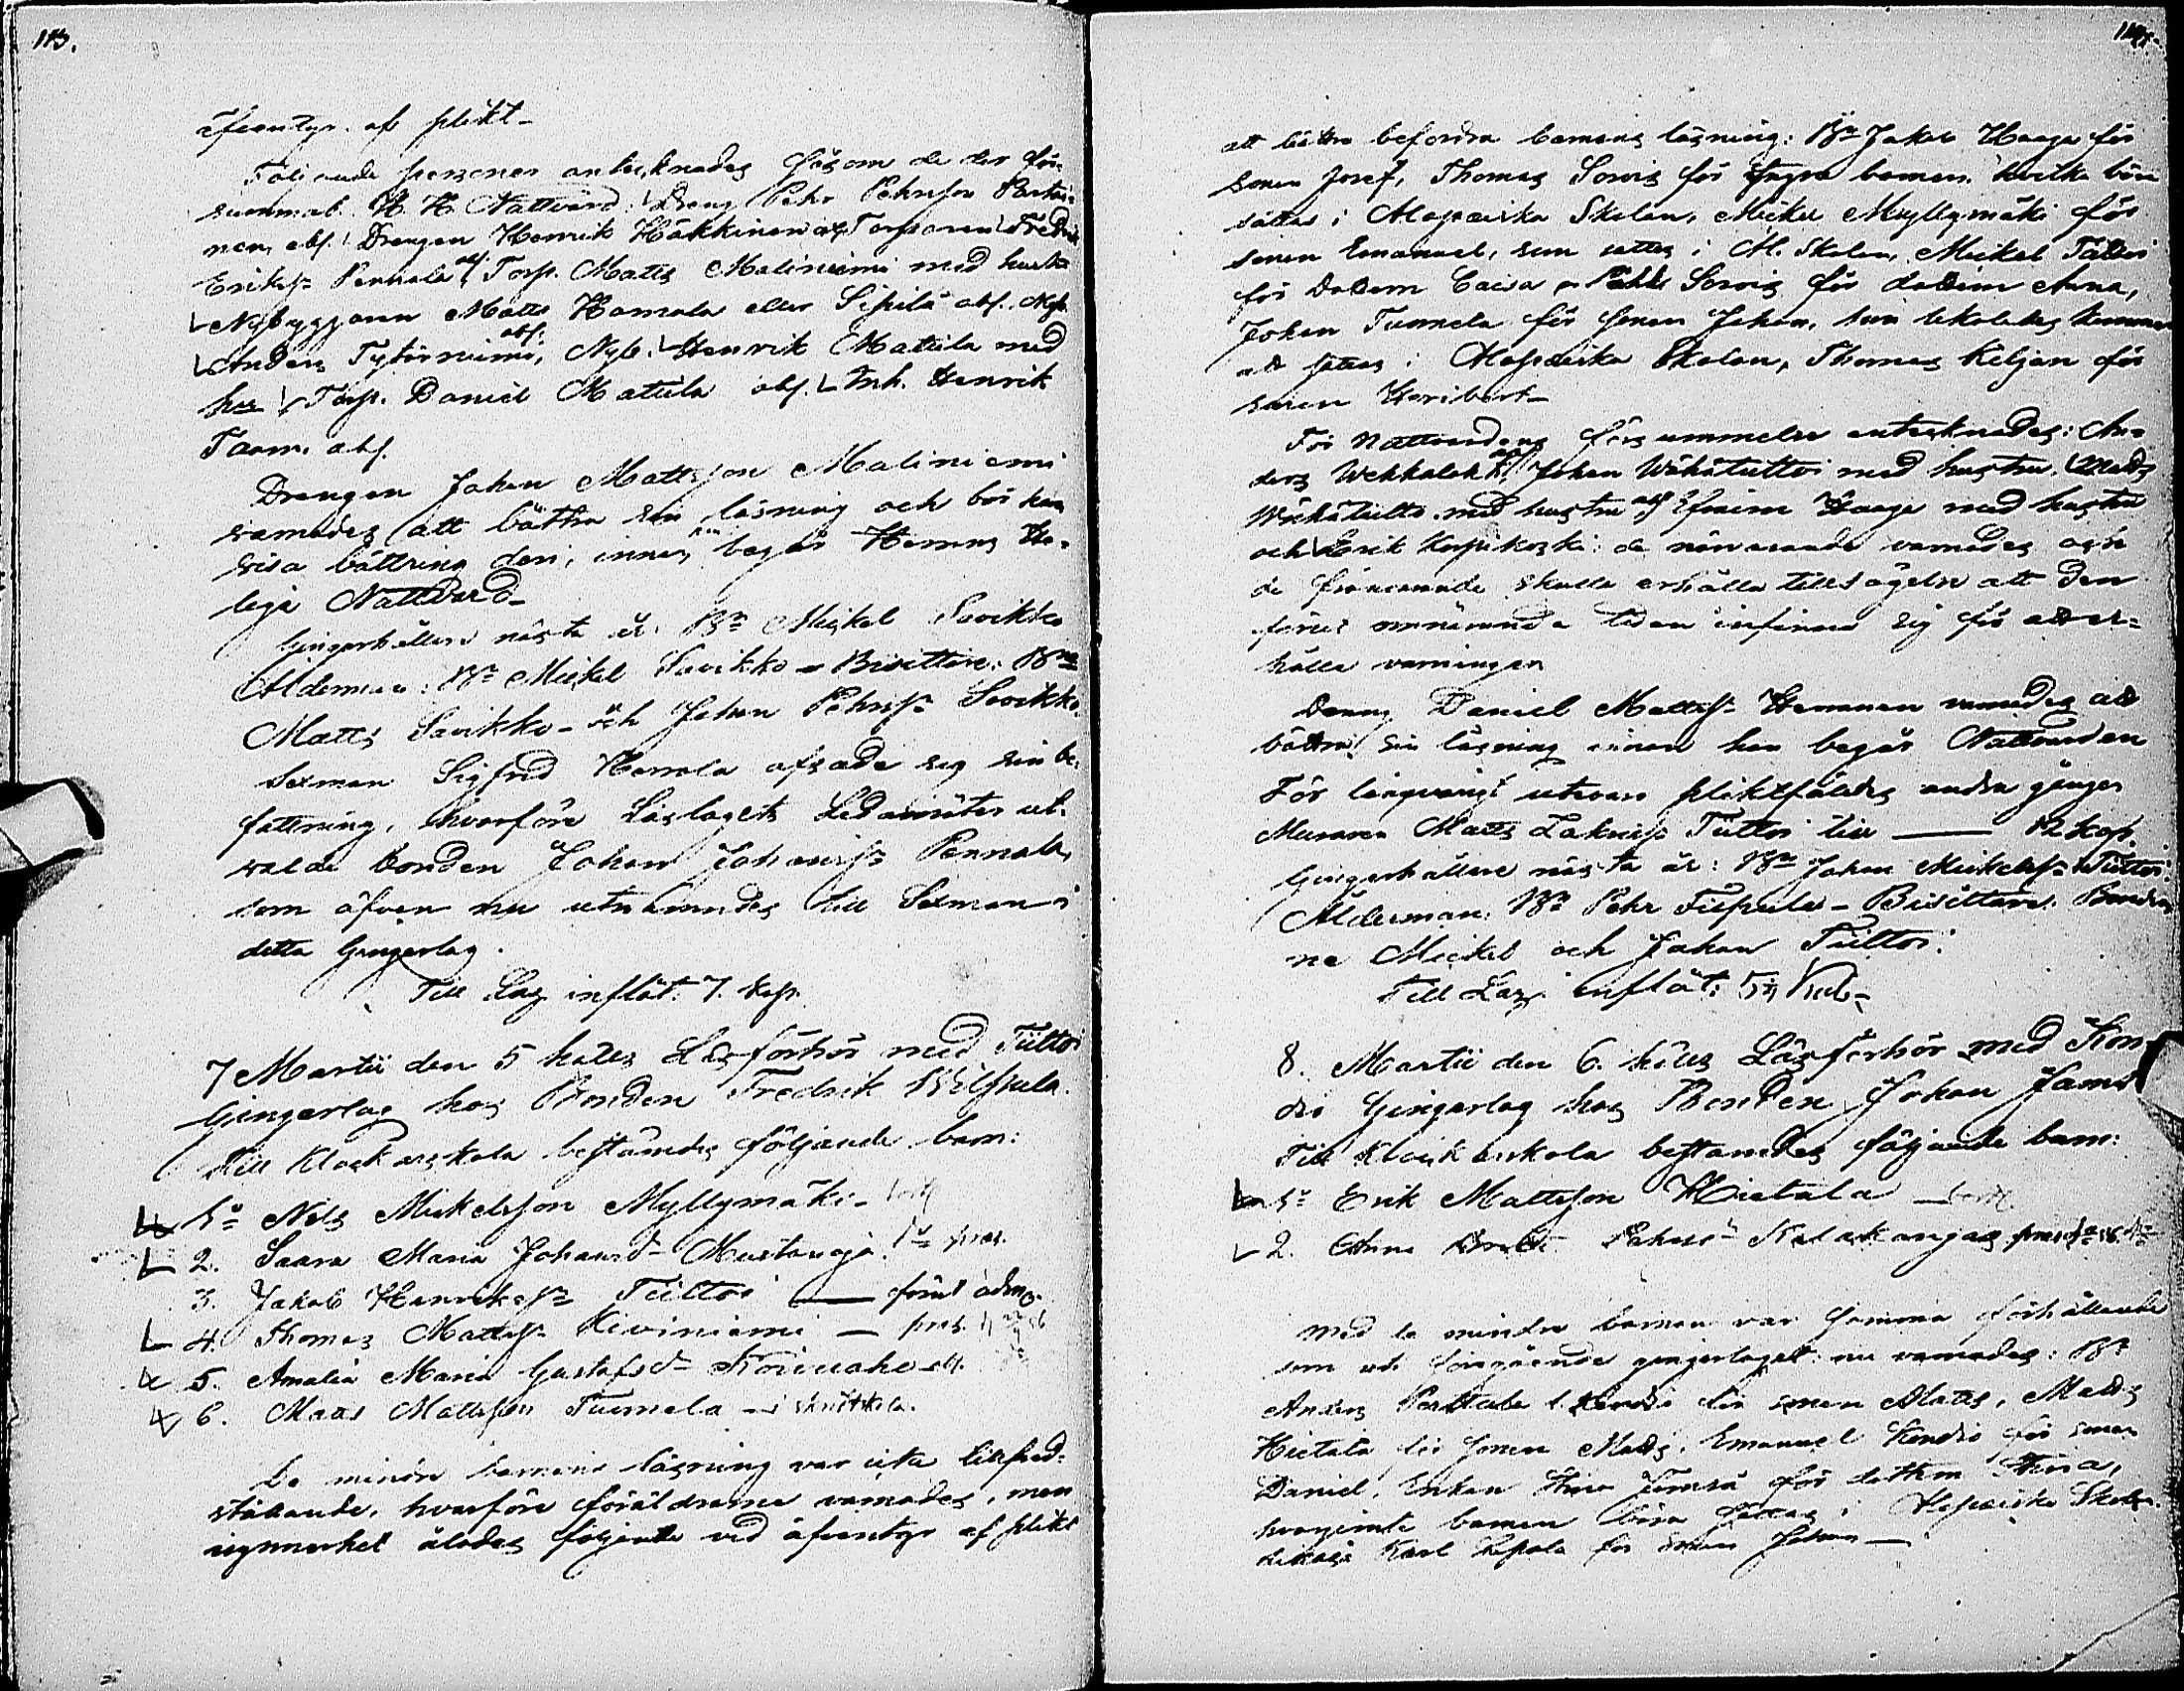 113.
äfventyr af plikt-
Följande personer antecknades såsom de der för-
summat H. H. Nattvard: Dreng Pehr Pehrsson Partai-
nen, abs. Drengen Henrik Häkkinen abs Torparen Fredrik
Eriks. Pennala abs. Torp. Matts Maliniemi med hustru
Nybyggaren Matts Hamala eller Sipilä abs. Nyb.
Anders Tytärniemi, abs. Nyb. Henrik Mattila med
hu Torp. Daniel Mattila abs. Inh. Henrik
Taam. abs.
Drengen Johan Mattsson Maliniemi
varnades att bättra sin läsning och bör han
visa bättring deri, innan han begår Herrans He-
liga Nattvard-
Gingerhållare nästa år: Bn Mickel Savikko
Ålderman: Bn Mickel Savikko - Bisittare: Bne
Matts Savikko - och Johan Pehrss. Savikko
Sexman Sigfrid Hamala afsade sig sin be-
fattning, hvarföre Läslagets Ledamöter ut-
valde bonden Johan Johanss. Pennala,
som äfven nu utnämndes till Sexman i
detta Gingerlag.
Till Lag inflöt. 7. kap.
7 Martii den 5 hölts Läsförhör med Tiittoi
Gingerlag hos Bonden Fredrik Wilpula.
Till Klockarskola bestämdes följande barn:
1o Nils Mickelsson Myllymäki-
2. Saara Maria Johansd. Mustanoja. pres.
3. Jakob Henrikss. Tiittoi — förut adm.
4. Thomas Mattss. Kiviniemi — pres.
5. Amalia Maria Gustafsd. Koivuaho
6. Matts Mattsson Tuomela —
De mindre barnens läsning var icke tillfreds-
ställande, hvarföre föräldrarna varnades, men
isynnerhet ålades följande vid äfventyr af plikt
114.
att bättre befordra barnens läsning: Bn Jakob Haaga för
sonen Josef, Thomas Sorvis för yngre barnen hvilka böra
sättas i Alapaikka Skolan, Mickel Myllymäki för
sonen Emanuel, som sattes i Al. Skolan, Mickel Tiittoi
för dottern Caisa Sorvis för dottern Anna,
Johan Tuomela för sonen Johan, som likaledes kommer
att sättas i Alapaikka Skolan, Thomas Kiljan för
sonen Heribert-
För Nattvardens försummelse antecknades: An-
ders Wekkalahti, Johan Wähätiittoi med hustru, Matts
Wähätiitto med hustru abs Efraim Haaga med hustru
och Erik Karpikoski: de närvarande varnades och
de frånvarande skulle erhålla tillsägelse att den
förut omnämnda tiden infinna sig för att er-
hålla varningen
Dreng Daniel Mattss. Hemanen varnades att
bättra sin läsning innan han begår Nattvarden
För långvarigt utevaro pliktfäldes andra gången
Muraren Matts Zakriss. Tiittoi till — 12 kop.
Gingerhållare nästa år: Bn Johan Mickelss. Tiittoi.
Ålderman: Bn Pehr Tiipula - Bisittare: Bönder-
ne Mickel och Johan Tiittoi.
Till Lag inflöt:
8. Martii den 6. hölls Läsförhör med Kon-
dio Gingerlag hos Bonden Johan Jams
Till Klockarskola bestämdes följande barn:
1o Erik Mattsson Hietala
2. Anna Kalakangas
Med de mindre barnen var samma förhållande
som uti föregående gingerlaget: nu varnades: Bn
Anders Perttula för sonen Matts, Matts
Hietala för sonen Matts, Emanuel Kondio för sonen
Daniel, Enkan för dottern Stina,
barnen böra sättas i Alapaikka Skolan
Karl Lepola för sonen Johan —